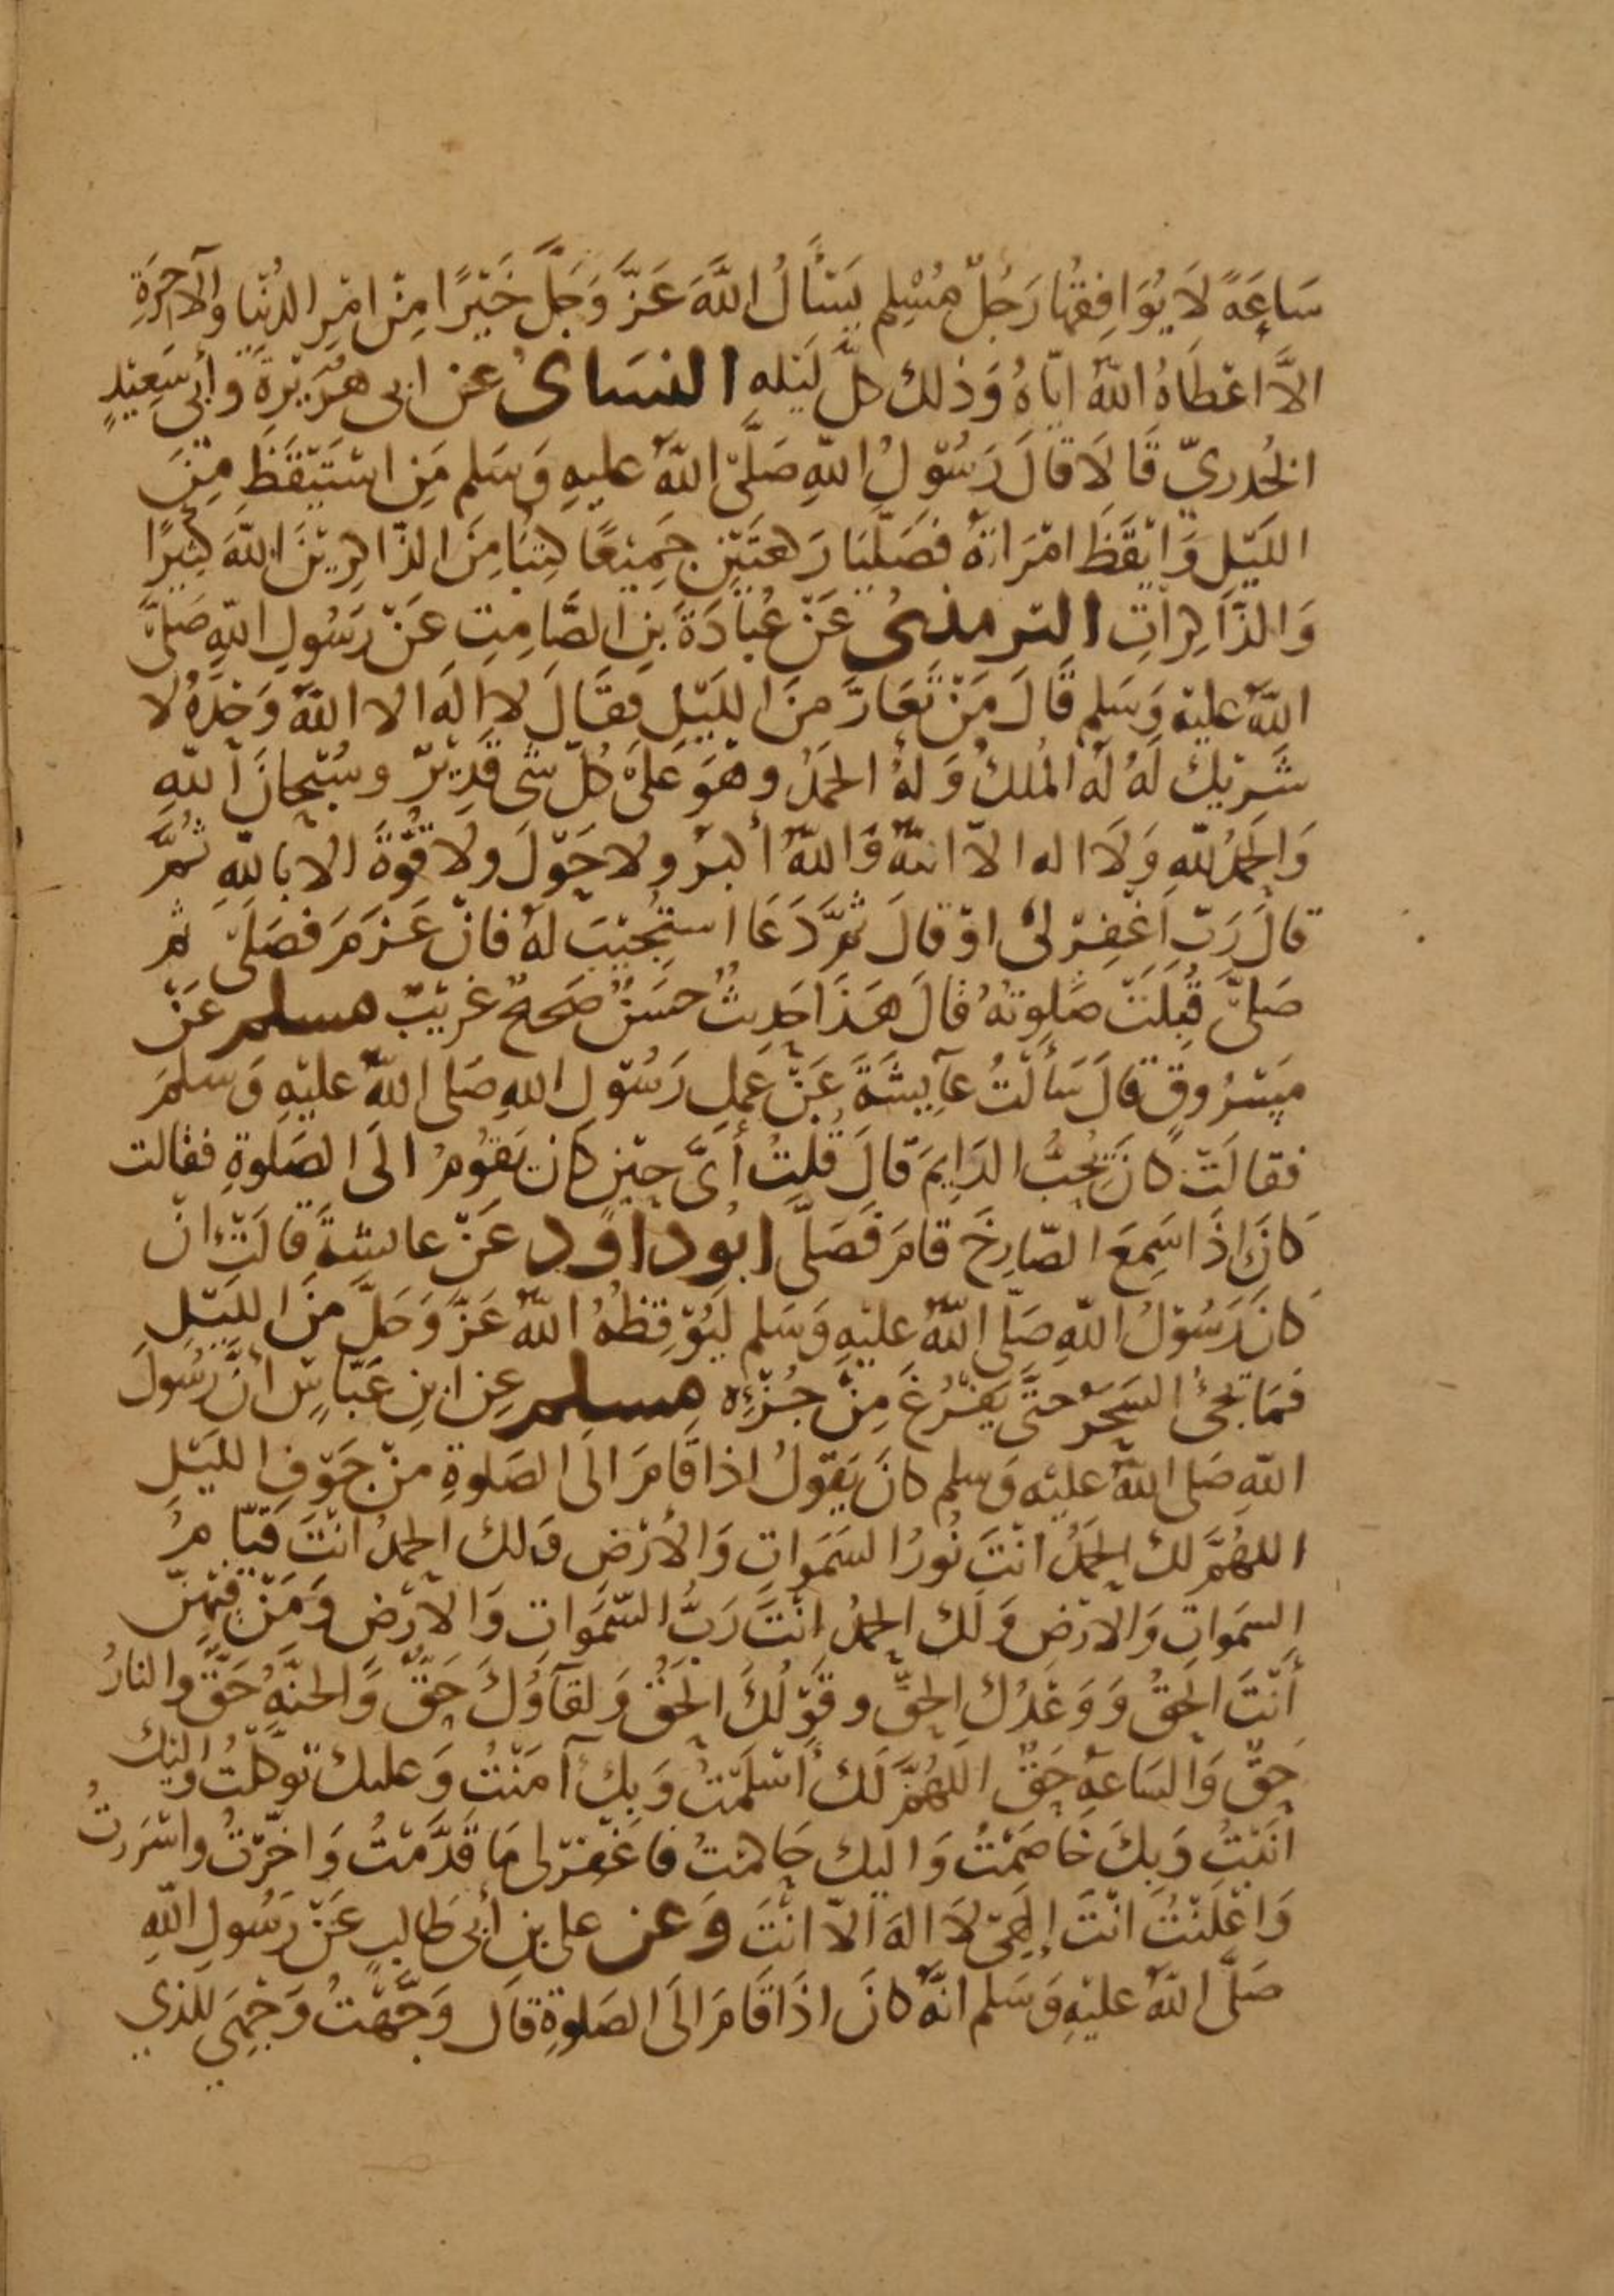 سَاعَةً لَا يُوَافِقُهَا رَجُلٌ مُسْلِم يَسْأَلُ اللَّهَ عَزَّ وَجَلَّ خَيْرًا مِنْ امْرِ الدُنْيَا وَالآخِرَةِ
الاَّ اعْطَاهُ اللهُ ايّاهُ وَذلك كلَّ لَيْله النسَائى عن ابى هُرَيْرَةَ وأبى سَعِيْدٍ
الخُدريّ قَالَا قالَ رَسُوْلُ اللهِ صَلَّى اللهُ عليهِ وَسَلم مَنِ اسْتَيْقَظَ مِنَ
اللَيْلِ وَايْقَظَ امْرَاتهُ فصَلَّيَا رَكعَتَيْنِ جَمِيْعًا كتِبَا مِنَ الذّاكِرِيْنَ اللهَ كثِيرًا
وَالذَّاكِرَاتِ الترمذىُ عَنْ عُبَادَةَ بنِ الصَّامِتِ عَنْ رَسُولِ اللهِ صَلىَّ
اللهُ عليْهِ وَسَلم قَالَ مَنْ تَعَارَّ منَ اللَيْلِ فقَالَ لا الَه الا اللهُ وَحْدَهُ لا
شَرِيْكَ لَهُ لَهُ المُلكُ وَلهُ الحَمْدُ وهْوَ عَلىَ كُلّ شَىْ قَدِيْرٌ وسُبْحَانَ اللهِ
وَالحمْدُ للهِ وَلَا اله الاّ اللهُ وَاللهُ أكبرُ ولا حَوْلَ ولا قُوَّةَ الا باللهِ ثُمَّ
قالَ رَبّ اغْفِرْ لىْ اوْ قالَ ثمَّ دَعَا استُجِيْبَ لهُ فانْ عَزَمَ فصَلىّ ثم
صَلىَّ قُبلَتْ صَلوتهُ قالَ هَذَا حَدِيثٌ حسَنٌ صَحِيحٌ غرِيْبٌ مسلم عَنْ
مَسْرُوقٍ قالَ سَأَلْتُ عآيِشَةَ عَنْ عَمَلِ رَسُوْلِ اللهِ صَلى اللهُ عليْهِ وَسلمَ
فقالَتْ كانَ يُحِبُّ الدَايِمَ قالَ قُلتُ أىَّ حِيْنٍ كانَ يَقوْمُ الَى الصَلوةِ فقالت
كانَ اِذَا سَمِعَ الصّارِخَ قامَ فَصَلىَّ ابُو داوُد عَنْ عايشةَ قالَتْ انْ
كانَ رَسُوْلُ اللهِ صَلّى اللهُ عليْهِ وَسَلم لَيُوْقِظُهُ اللهُ عَزَّ وَجَلَّ منَ اللَيْلِ
فمَا يجىُٔ السَحَرُ حَتَّى يَفْرُغَ مِنْ جُزْئِه مسلم عنِ ابنِ عَبّاسٍ أنَّ رَسُولَ
اللهِ صَلى اللهُ عليْه وَسلم كانَ يَقوْلُ اذا قَامَ الَى الصَلوةِ منْ جَوْفِ اللَيْلِ
اللهُمَّ لك الحَمْدُ انْتَ نُورُ السَمَواتِ وَالأَرْضِ وَلك الحمدُ انْتَ قَيّامُ
السمَواتِ وَالارْضِ وَلَك الحمدُ انْتَ رَبُّ السّمَواتِ وَالارْضِ وَمَنْ فيْهِنّ
أَنْتَ الحَقُ وَوَعْدُكَ الحقُّ وقَوْلُكَ الحَقُّ وَلقآؤُكَ حَقٌّ وَالجنّةُ حَقٌّ والنارُ
حَقٌّ وَالسَاعَةُ حَقٌ اللهُمَّ لَك أسْلَمْتُ وَبِكَ آمَنْتُ وَعليك توَكّلْتُ واليْك
انَبْتُ وَبِكَ خَاصَمْتُ وَاليك حَاكمْتُ فاغْفرْ لى مَا قَدَّمْتُ وَاخّرْتُ واسْرَرتُ
وَاعْلَنْتُ انْتَ إلَهِىْ لَا الهَ الاّ انْتَ وَعن على بن أبى طالبٍ عَنْ رَسُولِ اللهِ
صَلَّى اللهُ عليْهِ وَسَلم انّهُ كانَ اذَا قَامَ الَى الصَلوةِ قالَ وَجّهْتُ وَجْهِيَ للذي